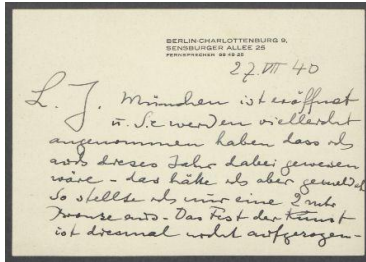 BERLIN-CHARLOTTENBURG 9,
SENSBURGER ALLEE 25
FERNSPRECHER
27. VII 40
L. J. München ist eröffnet
u. Sie werden vielleicht
angenommen haben dass ich
auch dieses Jahr dabei gewesen
wäre - das hätte ich aber gemeldet
So stellte ich nur eine
Bronze aus - Das Fest der Kunst
ist diesmal nicht aufgezogen -